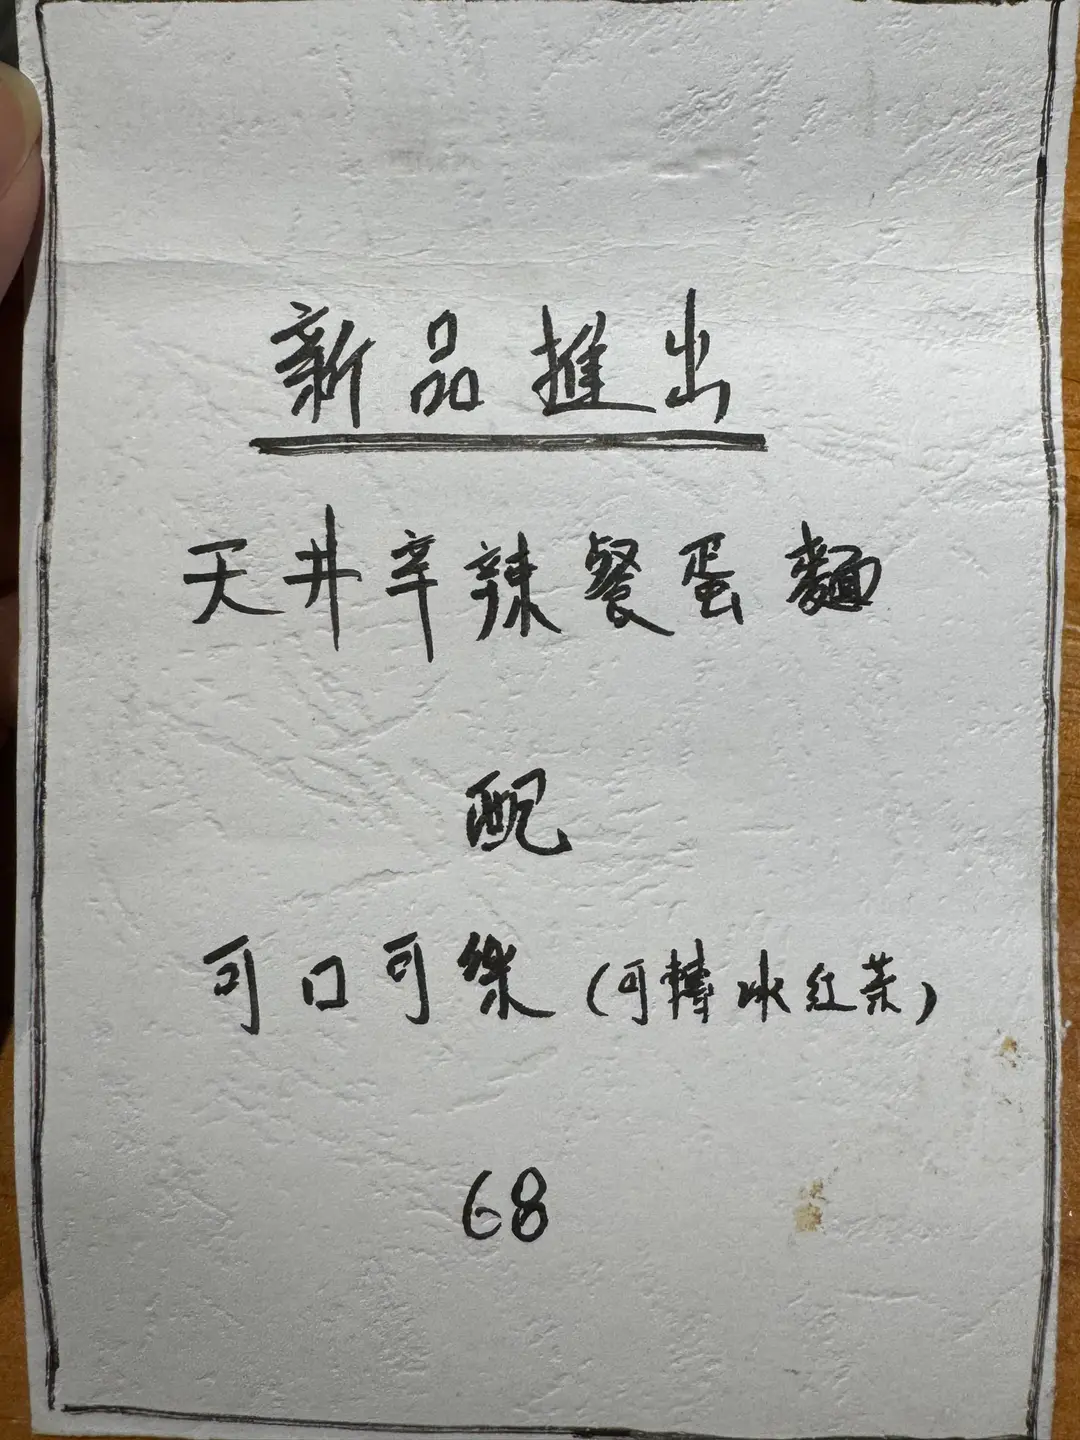 新品推出
天井辛辣餐蛋麵
配
可口可樂(可轉冰紅茶)
68